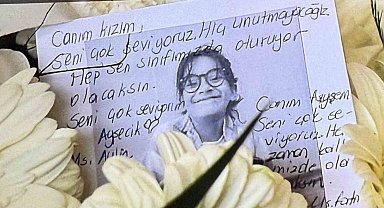 Canım kızım,
Seni çok seviyoruz. Hiç unutmayacağız.
Hep sen sınıfımızda oturuyor
olacaksın.
Seni çok seviyorum
Ayşecik
Ms. Aylin
Canım Ayşem
Seni çok se-
viyoruz. He
zaman kal
imizde ola
Ms. Fatih